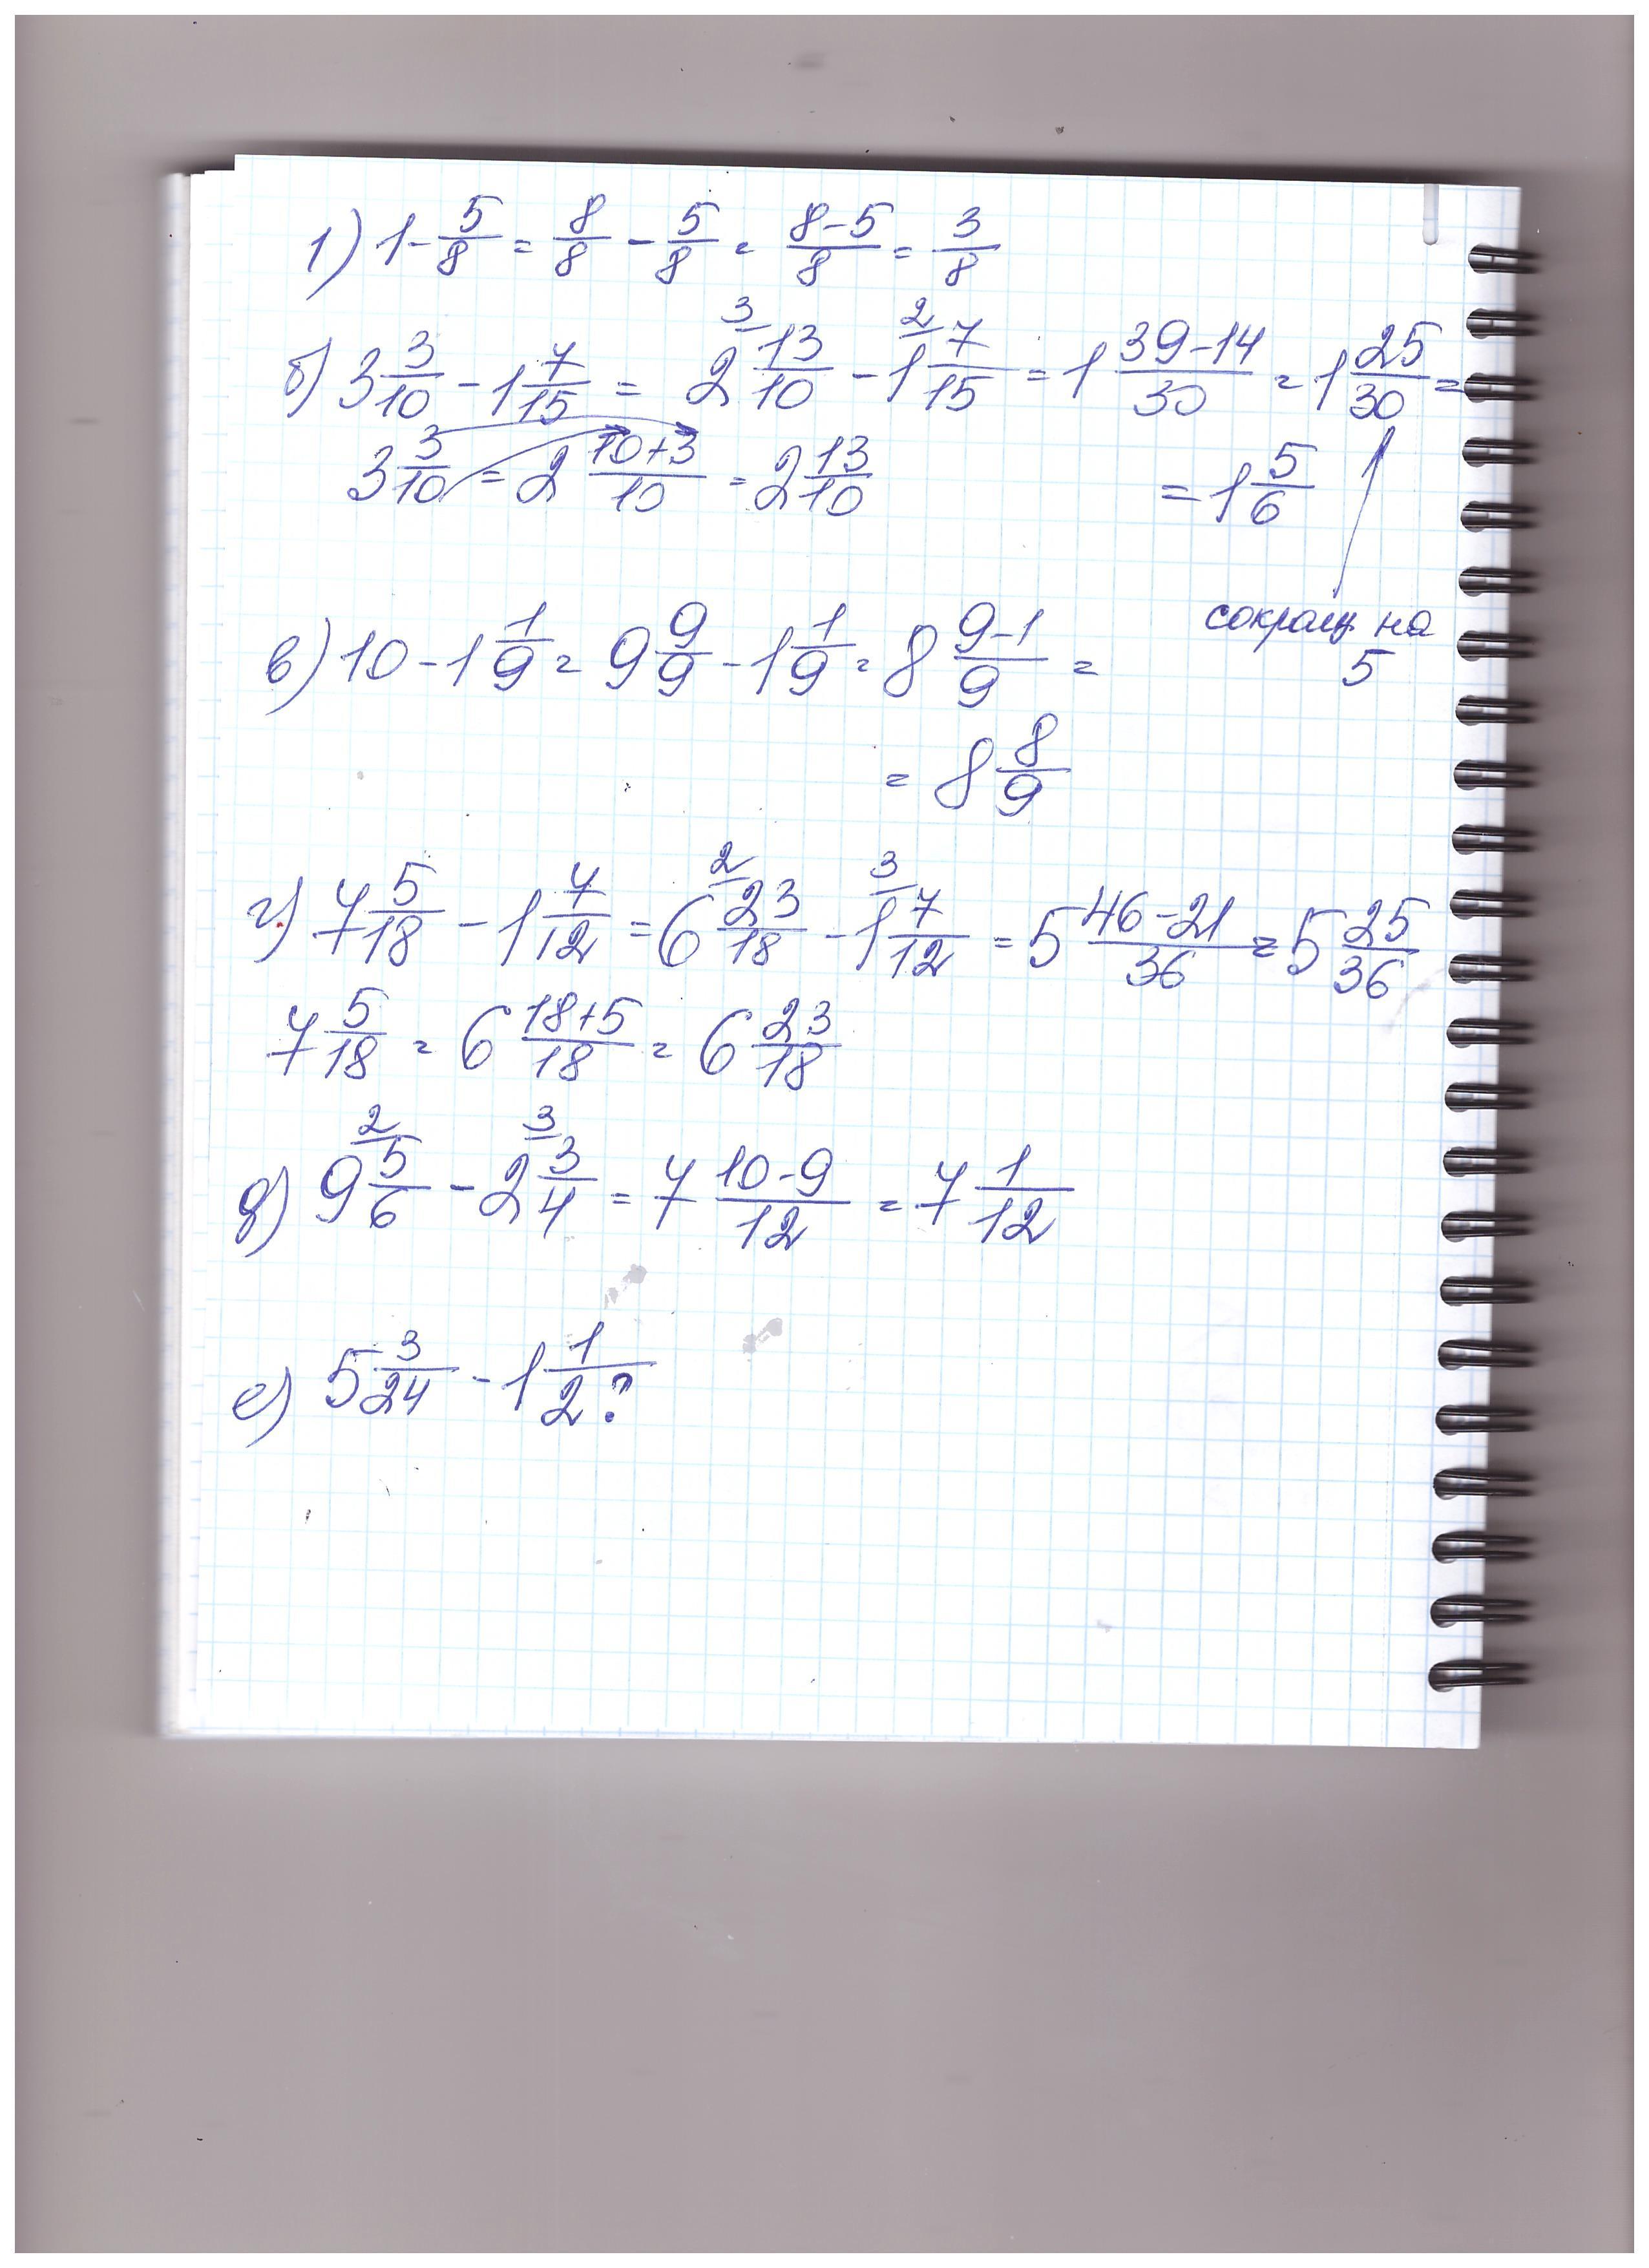 1) 1 - 5/8 = 8/8 - 5/8 = 8-5/8 = 3/8
б) 3 3/10 - 1 7/15 = 2 13/10 (3) - 1 7/15 (2) = 1 39-14/30 = 1 25/30 =
3 3/10 = 2 10+3/10 = 2 13/10 = 1 5/6
сокращ на
5
в) 10 - 1 1/9 = 9 9/9 - 1 1/9 = 8 9-1/9 =
= 8 8/9
г) 7 5/18 - 1 7/12 = 6 23/18 (2) - 1 7/12 (3) = 5 46-21/36 = 5 25/36
7 5/18 = 6 18+5/18 = 6 23/18
д) 9 5/6 (2) - 2 3/4 (3) = 7 10-9/12 = 7 1/12
е) 5 3/24 - 1 1/2 ?